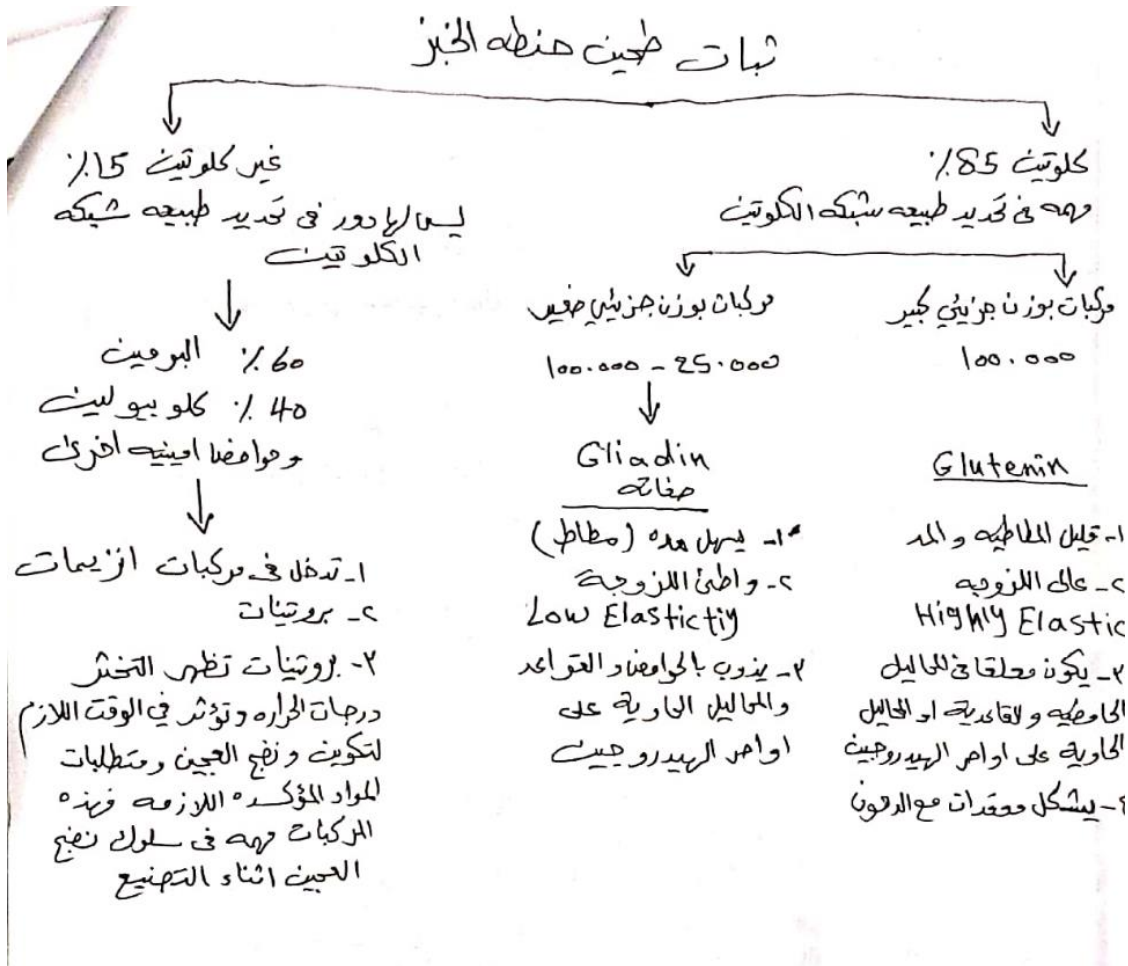 ثبات طحين حنطه الخبز
كلوتين 85٪
مهمه في تحديد طبيعه شبكه الكلوتين
مركبات بوزن جزيئي كبير
100.000
Glutenin
1- قليل المطاطيه والمد
2- عالي اللزوجيه
Highly Elastic
3- يكون معلقا في المحاليل
الحامظيه والقاعدية او المحاليل
الحاوية على اواصر الهيدروجين
4- يشكل معقدات مع الدهون
مركبات بوزن جزيئي صغير
100.000 - 25.000
Gliadin
صفاته
1- يسهل مده (مطاط)
2- واطئ اللزوجة
Low Elastictiy
3- يذوب بالحوامض والقواعد
والمحاليل الحاوية على
اواصر الهيدروجين
غير كلوتين 15٪
ليس لها دور في تحديد طبيعه شبكه
الكلوتين
60٪ البومين
40٪ كلوبيولين
وحوامض امينيه اخرى
1- تدخل في مركبات انزيمات
2- بروتينات
3- بروتينات تظهر التخثر
درجات الحراره وتؤثر في الوقت اللازم
لتكوين ونضج العجين ومتطلبات
المواد المؤكسده اللازمه فهذه
المركبات مهمه في سلوك نضج
العجين اثناء التصنيع